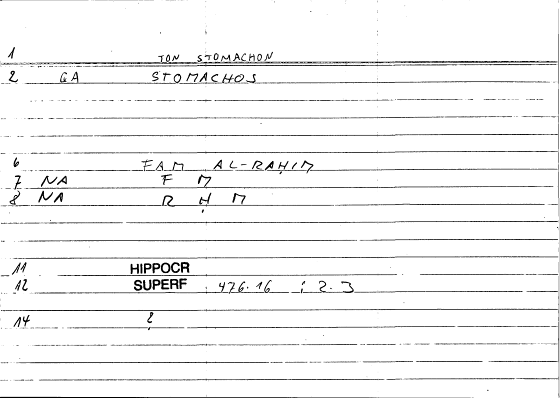 1 TON STOMACHON
2 GA STOMACHOS
6 FAM AL-RAḤIM
7 NA F M
8 NA R Ḥ M
11 HIPPOCR
12 SUPERF 476.16 : 2.3
14